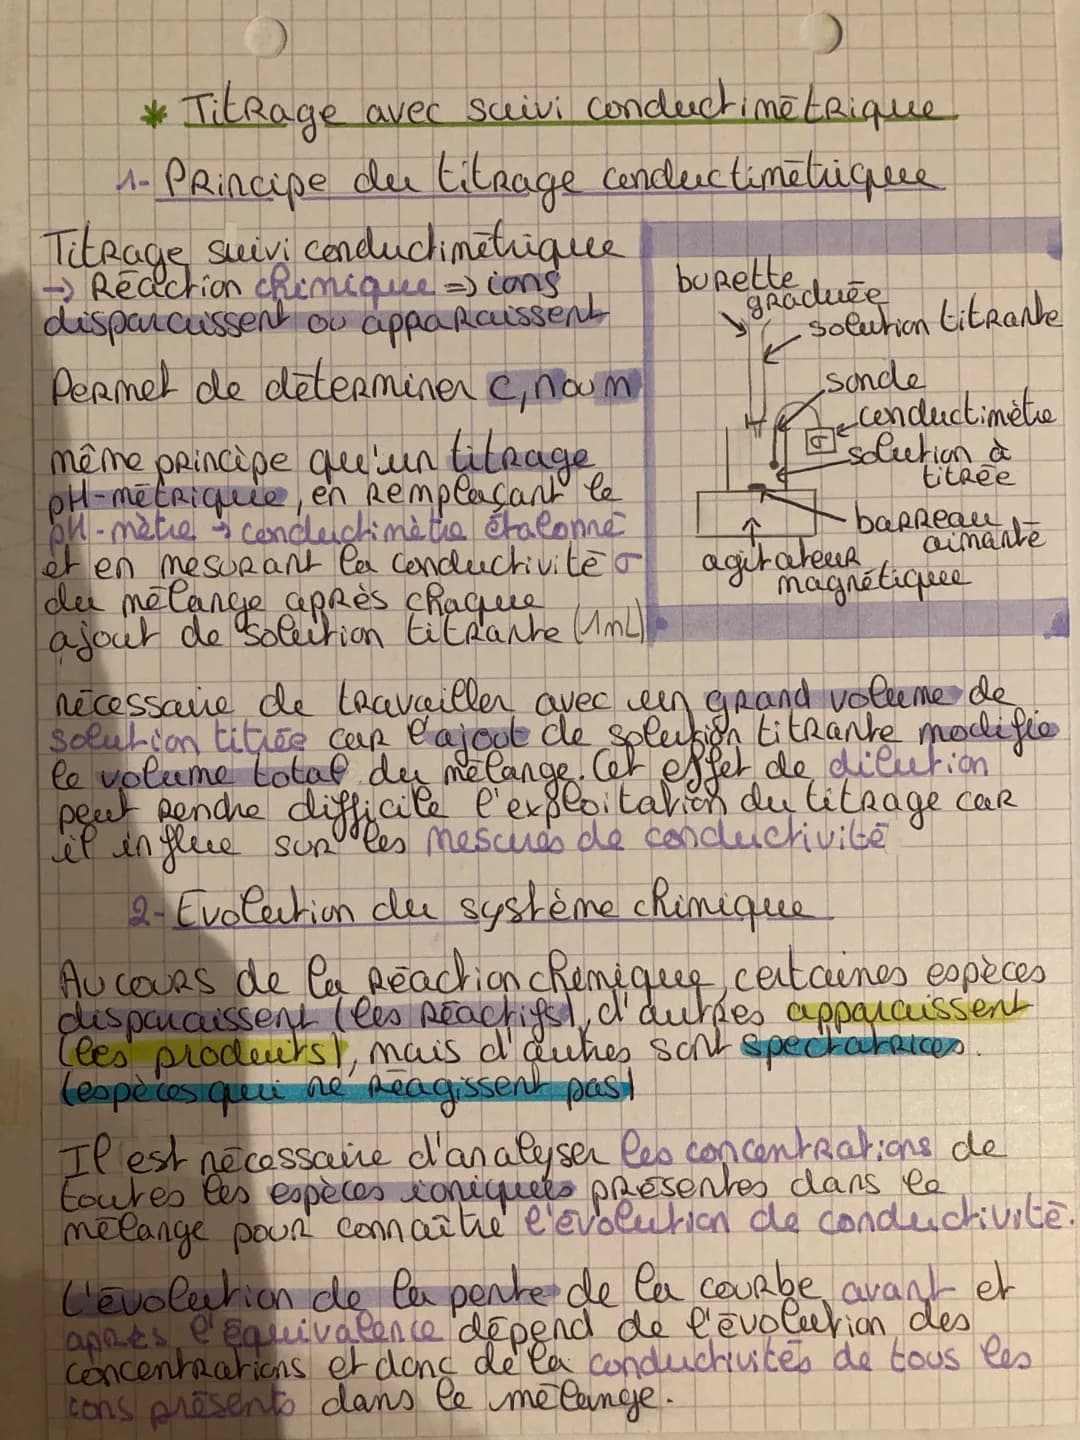 * Titrage avec suivi conductimétrique
1- Principe du titrage conductimétrique
Titrage suivi conductimétrique
→ Réaction chimique => ions
disparaissent ou apparaissent
Permet de déterminer c, n ou m
même principe qu'un titrage
pH-métrique, en remplaçant le
pH-mètre → conductimètre étalonné
et en mesurant la conductivité σ
du mélange après chaque
ajout de solution titrante (1mL)
burette
graduée
solution titrante
sonde
conductimètre
σ
solution à
titrée
barreau
aimanté
agitateur
magnétique
nécessaire de travailler avec un grand volume de
solution titrée car l'ajout de solution titrante modifie
le volume total du mélange. Cet effet de dilution
peut rendre difficile l'exploitation du titrage car
il influe sur les mesures de conductivité
2- Evolution du système chimique
Au cours de la réaction chimique, certaines espèces
disparaissent (les réactifs), d'autres apparaissent
(les produits), mais d'autres sont spectatrices.
(espèces qui ne réagissent pas)
Il est nécessaire d'analyser les concentrations de
toutes les espèces ioniques présentes dans le
mélange pour connaître l'évolution de conductivité.
L'évolution de la pente de la courbe avant et
après l'équivalence dépend de l'évolution des
concentrations et donc de la conductivités de tous les
ions présents dans le mélange.